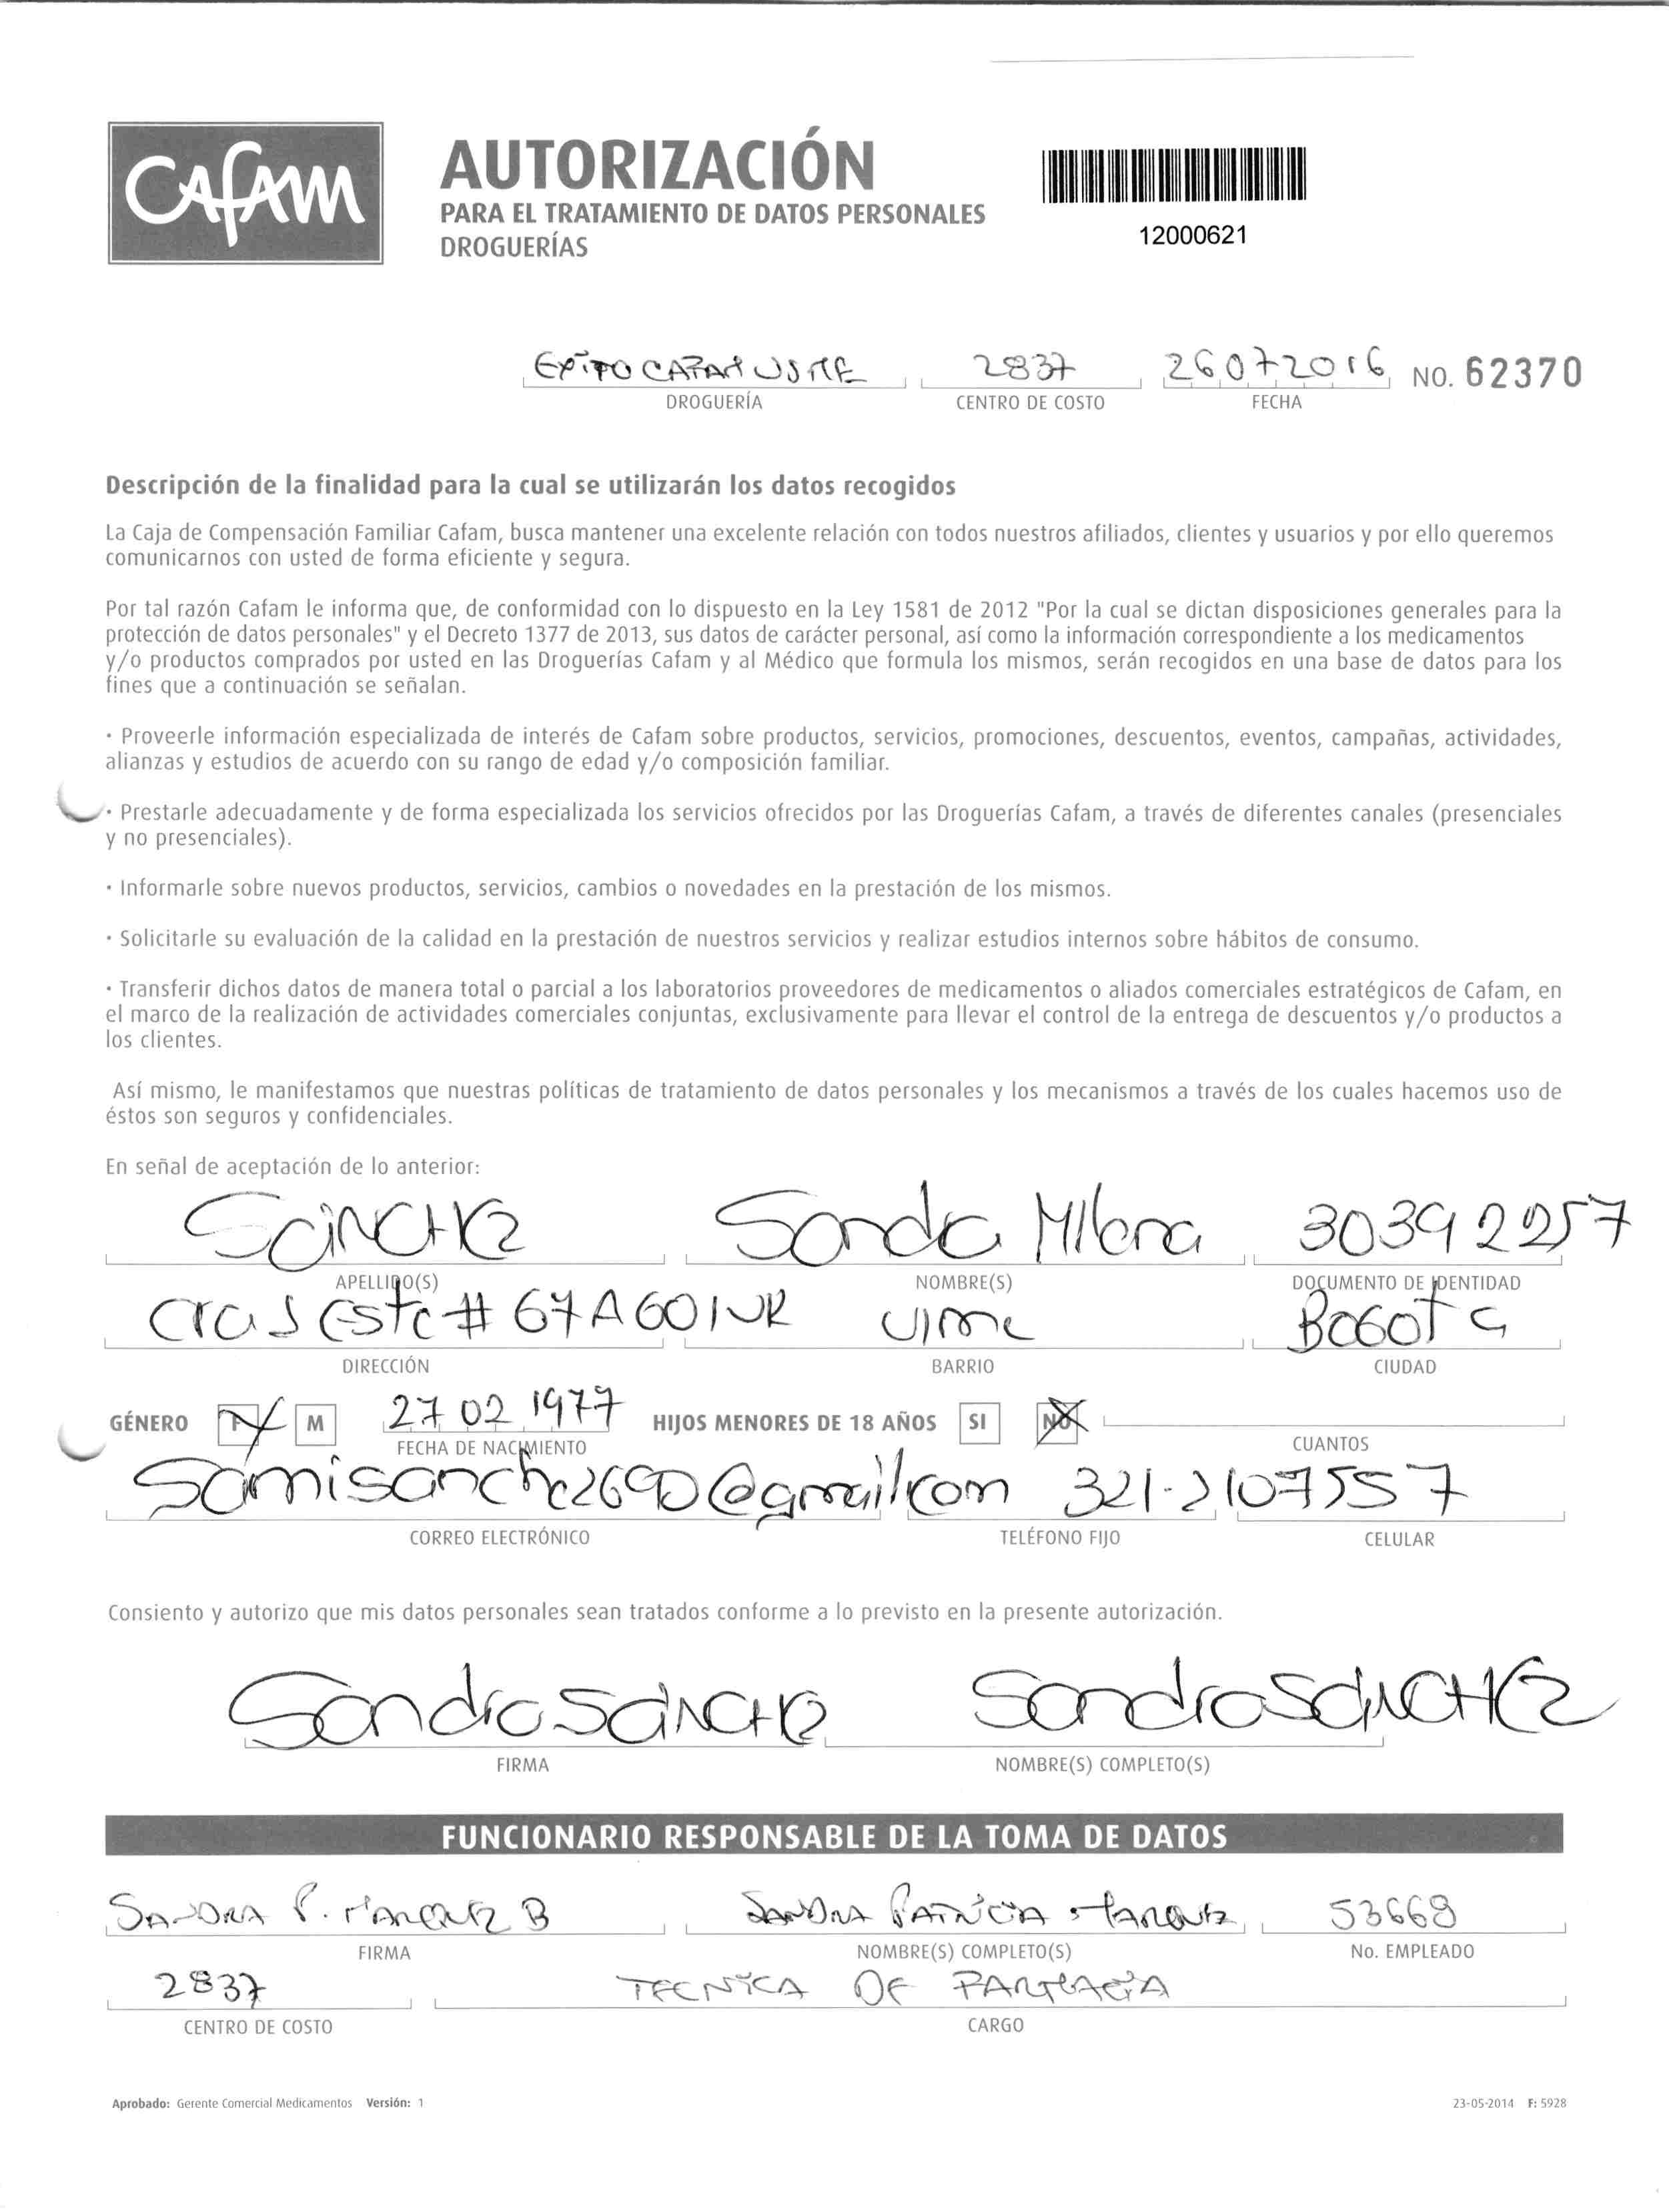 CAFAM
AUTORIZACIÓN
PARA EL TRATAMIENTO DE DATOS PERSONALES
DROGUERÍAS
12000621
EXITO CAFAM USME 2837 26 07 2016 NO. 62370
DROGUERÍA CENTRO DE COSTO FECHA
Descripción de la finalidad para la cual se utilizarán los datos recogidos
La Caja de Compensación Familiar Cafam, busca mantener una excelente relación con todos nuestros afiliados, clientes y usuarios y por ello queremos
comunicarnos con usted de forma eficiente y segura.
Por tal razón Cafam le informa que, de conformidad con lo dispuesto en la Ley 1581 de 2012 "Por la cual se dictan disposiciones generales para la
protección de datos personales" y el Decreto 1377 de 2013, sus datos de carácter personal, así como la información correspondiente a los medicamentos
y/o productos comprados por usted en las Droguerías Cafam y al Médico que formula los mismos, serán recogidos en una base de datos para los
fines que a continuación se señalan.
· Proveerle información especializada de interés de Cafam sobre productos, servicios, promociones, descuentos, eventos, campañas, actividades,
alianzas y estudios de acuerdo con su rango de edad y/o composición familiar.
· Prestarle adecuadamente y de forma especializada los servicios ofrecidos por las Droguerías Cafam, a través de diferentes canales (presenciales
y no presenciales).
· Informarle sobre nuevos productos, servicios, cambios o novedades en la prestación de los mismos.
· Solicitarle su evaluación de la calidad en la prestación de nuestros servicios y realizar estudios internos sobre hábitos de consumo.
· Transferir dichos datos de manera total o parcial a los laboratorios proveedores de medicamentos o aliados comerciales estratégicos de Cafam, en
el marco de la realización de actividades comerciales conjuntas, exclusivamente para llevar el control de la entrega de descuentos y/o productos a
los clientes.
Así mismo, le manifestamos que nuestras políticas de tratamiento de datos personales y los mecanismos a través de los cuales hacemos uso de
éstos son seguros y confidenciales.
En señal de aceptación de lo anterior:
SáNCHEZ Sandra Milena 30392257
APELLIDO(S) NOMBRE(S) DOCUMENTO DE IDENTIDAD
Cra 5 Este # 67A 60 Bogota
DIRECCIÓN BARRIO CIUDAD
GÉNERO F M 27 02 1977 HIJOS MENORES DE 18 AÑOS SI NO
FECHA DE NACIMIENTO CUANTOS
@gmail.com 321-2107557
CORREO ELECTRÓNICO TELÉFONO FIJO CELULAR
Consiento y autorizo que mis datos personales sean tratados conforme a lo previsto en la presente autorización.
Sandra SáNCHEZ Sandra SáNCHEZ
FIRMA NOMBRE(S) COMPLETO(S)
FUNCIONARIO RESPONSABLE DE LA TOMA DE DATOS
SANDRA P. MARQUEZ B SANDRA PATRICIA MARQUEZ 53668
FIRMA NOMBRE(S) COMPLETO(S) No. EMPLEADO
2837 TECNICA DE FARMACIA
CENTRO DE COSTO CARGO
Aprobado: Gerente Comercial Medicamentos Versión: 1 23-05-2014 F: 5928